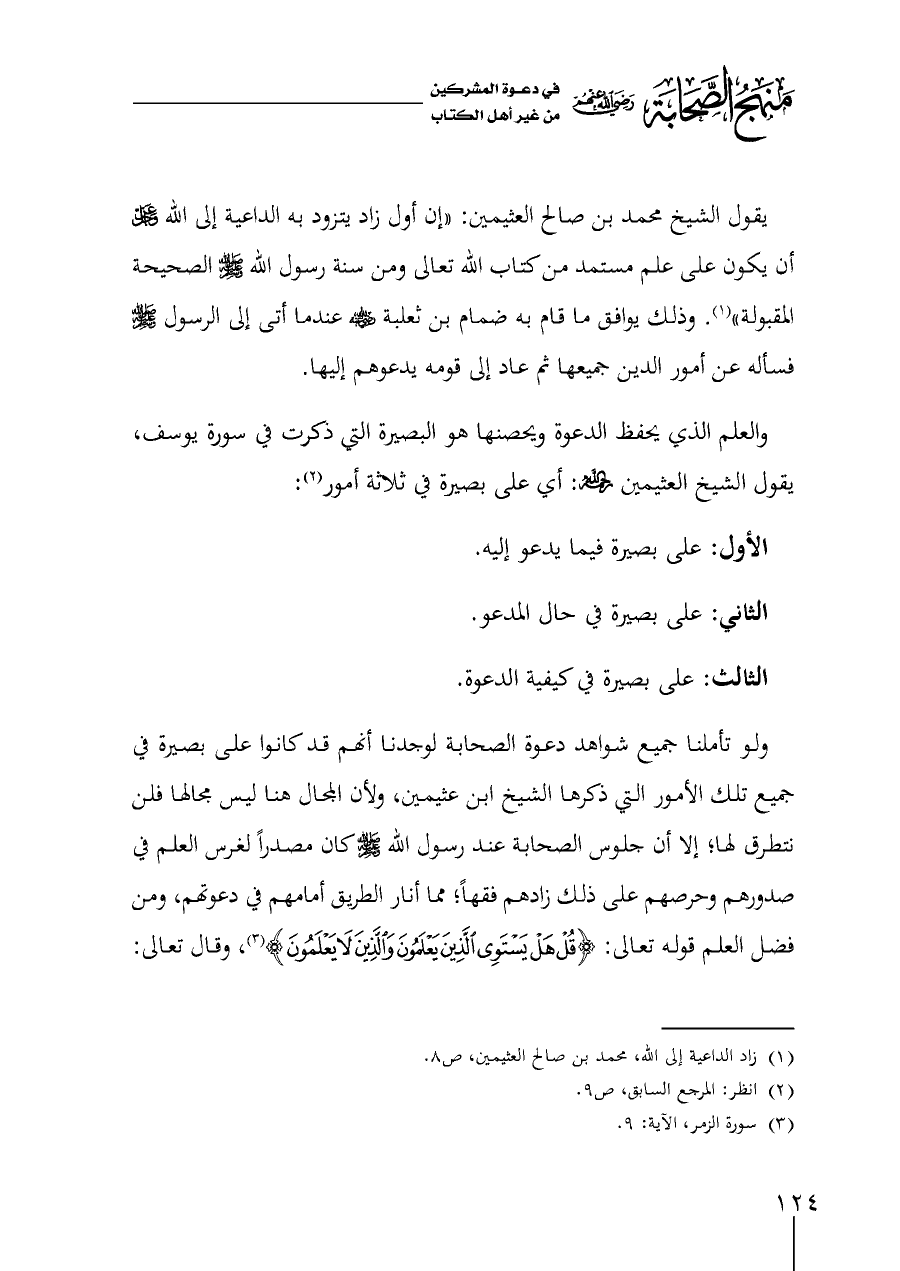 منهج الصحابة رضي الله عنهم في دعوة المشركين
من غير أهل الكتاب
يقول الشيخ محمد بن صالح العثيمين: «إن أول زاد يتزود به الداعية إلى الله عز وجل
أن يكون على علم مستمد من كتاب الله تعالى ومن سنة رسول الله ﷺ الصحيحة
المقبولة»(١). وذلك يوافق ما قام به ضمام بن ثعلبة رضي الله عنه عندما أتى إلى الرسول ﷺ
فسأله عن أمور الدين جميعها ثم عاد إلى قومه يدعوهم إليها.
والعلم الذي يحفظ الدعوة ويحصنها هو البصيرة التي ذكرت في سورة يوسف،
يقول الشيخ العثيمين رحمه الله: أي على بصيرة في ثلاثة أمور(٢):
الأول: على بصيرة فيما يدعو إليه.
الثاني: على بصيرة في حال المدعو.
الثالث: على بصيرة في كيفية الدعوة.
ولو تأملنا جميع شواهد دعوة الصحابة لوجدنا أنهم قد كانوا على بصيرة في
جميع تلك الأمور التي ذكرها الشيخ ابن عثيمين، ولأن المجال هنا ليس مجالها فلن
نتطرق لها؛ إلا أن جلوس الصحابة عند رسول الله ﷺ كان مصدراً لغرس العلم في
صدورهم وحرصهم على ذلك زادهم فقهاً؛ مما أنار الطريق أمامهم في دعوتهم، ومن
فضل العلم قوله تعالى: ﴿قُلْ هَلْ يَسْتَوِى ٱلَّذِينَ يَعْلَمُونَ وَٱلَّذِينَ لَا يَعْلَمُونَ﴾(٣)، وقال تعالى:
(١) زاد الداعية إلى الله، محمد بن صالح العثيمين، ص٨.
(٢) انظر: المرجع السابق، ص٩.
(٣) سورة الزمر، الآية: ٩.
١٢٤